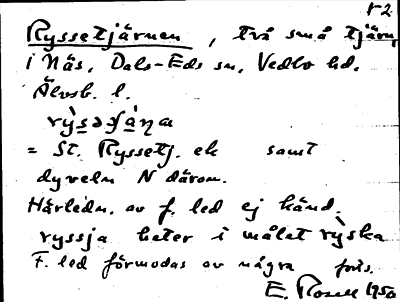 12
Ryssetjärnen, två små tjärn,
i Näs, Dals-Eds sn, Vedbo hd.
Älvsb. l.
rỳsəʃæ̀ṇa
= St. Ryssetj. ek samt
dyveln N därom.
Härledn. av f. led ej känd.
ryssja heter i målet rỳska
F. led förmodas av några forts.
E. Rosell 1950